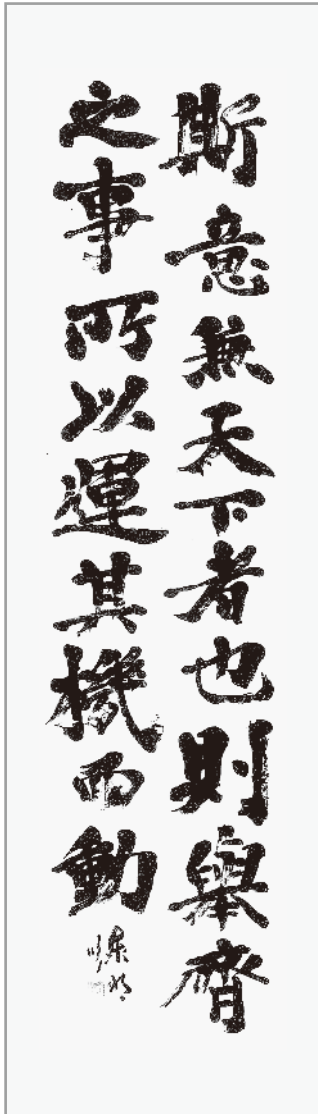 斯意兼天下者也則舉齊
之事所以運其機而動